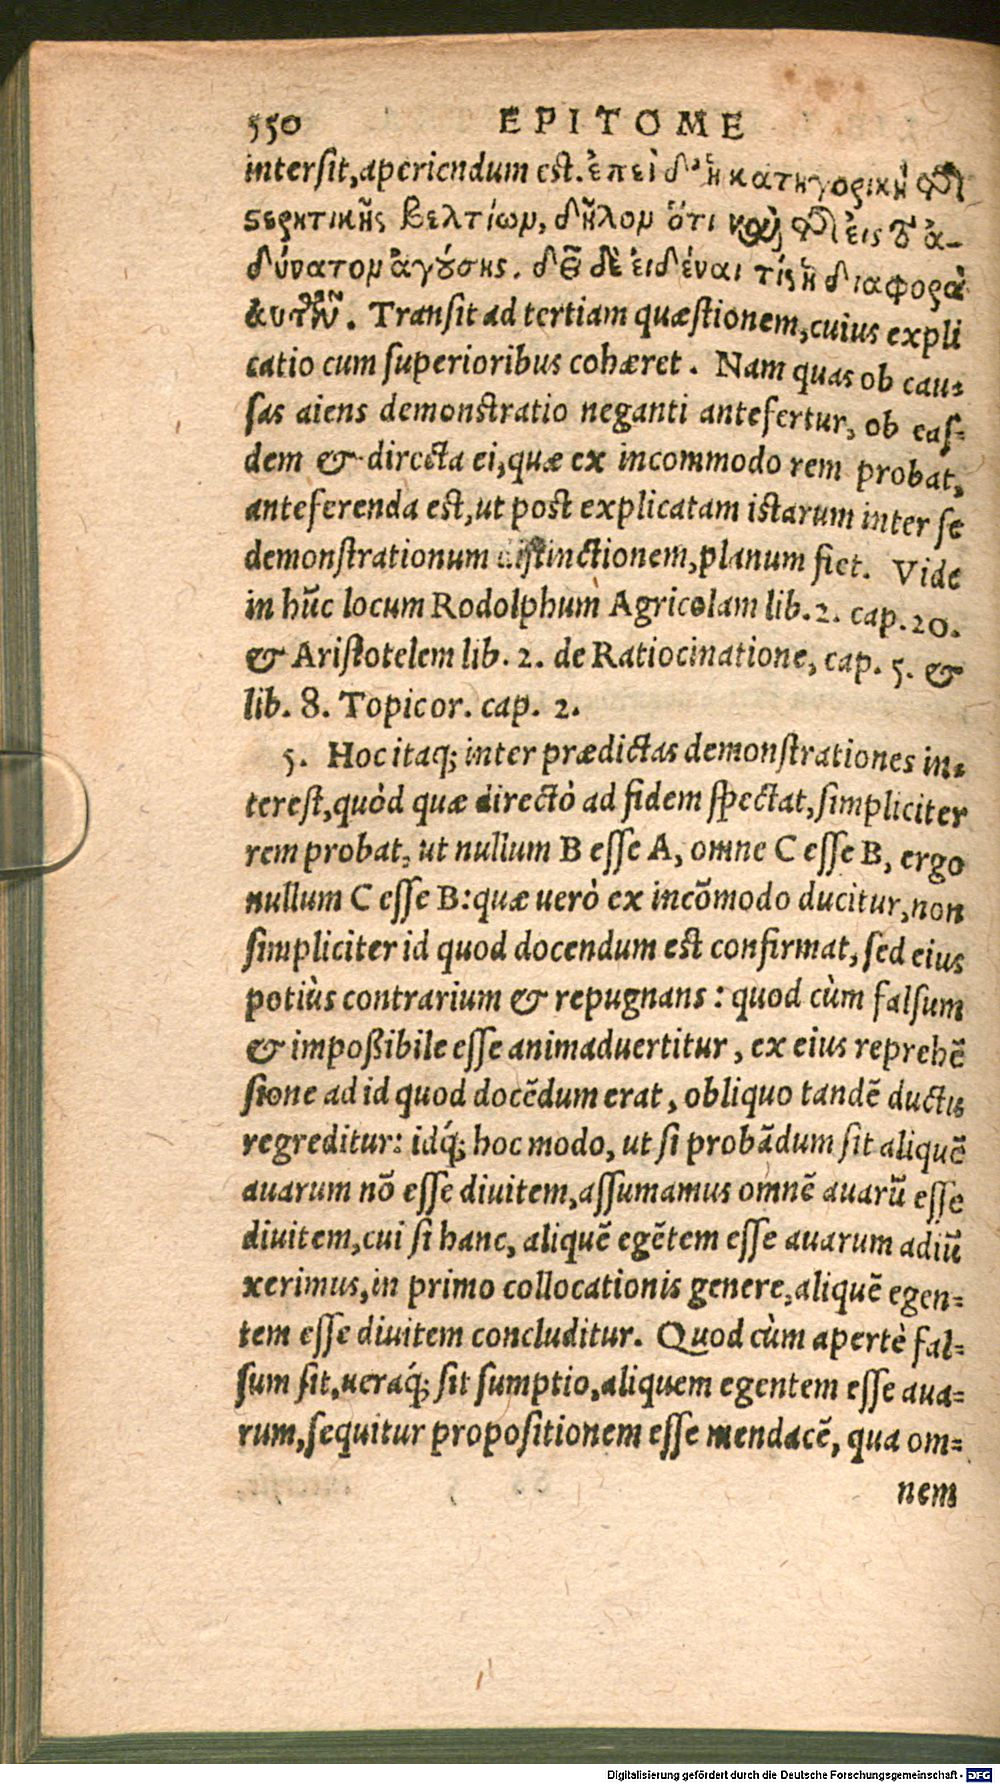 550 EPITOME
interſit, aperiendum est. ἐπεὶ δ' ἡ κατηγορικὴ τῆς
στερητικῆς βελτίων, δῆλον ὅτι καὶ τῆς εἰς τὸ ἀ-
δύνατον ἀγούσης. δεῖ δὲ εἰδέναι τίς ἡ διαφορὰ
ἀυτῶν. Tranſit ad tertiam quæſtionem, cuius expli
catio cum ſuperioribus cohæret. Nam quas ob cau-
ſas aiens demonstratio neganti antefertur, ob eaſ-
dem & directa ei, quæ ex incommodo rem probat,
anteferenda est, ut post explicatam istarum inter ſe
demonſtrationum distinctionem, planum fiet. Vide
in hūc locum Rodolphum Agricolam lib. 2. cap. 20.
& Ariſtotelem lib. 2. de Ratiocinatione, cap. 5. &
lib. 8. Topicor. cap. 2.
5. Hoc itaq; inter prædictas demonſtrationes in-
tereſt, quòd quæ directò ad fidem ſpectat, ſimpliciter
rem probat, ut nullum B eſſe A, omne C eſſe B, ergo
nullum C eſſe B: quæ uerò ex incōmodo ducitur, non
ſimpliciter id quod docendum est confirmat, ſed eius
potiùs contrarium & repugnans: quod cùm falſum
& impoßibile eſſe animaduertitur, ex eius reprehē
ſione ad id quod docēdum erat, obliquo tandē ductu
regreditur: idq́; hoc modo, ut ſi probādum ſit aliquē
auarum nō eſſe diuitem, aſſumamus omnē auarū eſſe
diuitem, cui ſi hanc, aliquē egētem eſſe auarum adiū
xerimus, in primo collocationis genere, aliquē egen-
tem eſſe diuitem concluditur. Quod cùm apertè fal-
ſum ſit, ueraq́; ſit ſumptio, aliquem egentem eſſe aua-
rum, ſequitur propoſitionem eſſe mendacē, qua om-
nem
Digitalisierung gefördert durch die Deutsche Forschungsgemeinschaft - DFG